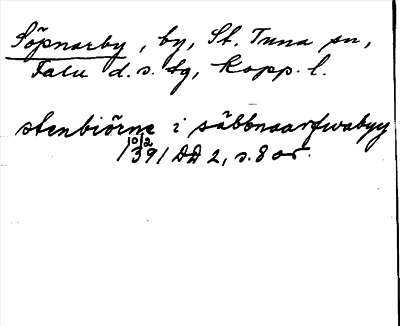 Söpnarby, by, St. Tuna sn,
Falu d. s. tg, Kopp. l.
stenbiörne i säbbnaarfwabyy
10/2
1391 DD 2, s. 8 or.